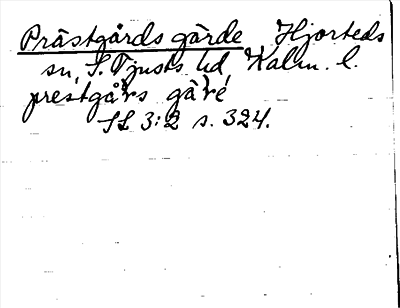 Prästgårds gärde Hjorteds
sn, S. Tjusts hd, Kalm. l.
prestgårs gäre
SL 3:2 s. 324.